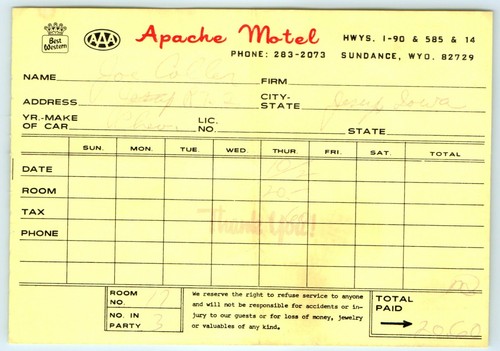 Best Western AAA Apache Motel HWYS. I-90 & 585 & 14
PHONE: 283-2073 SUNDANCE, WYO. 82729
NAME Joe FIRM
ADDRESS CITY-STATE Jesup Iowa
YR.-MAKE OF CAR Chev LIC. NO. STATE
SUN. MON. TUE. WED. THUR. FRI. SAT. TOTAL
DATE
ROOM 20-
TAX
Thank You!
PHONE
ROOM NO. 17
NO. IN PARTY 3
We reserve the right to refuse service to anyone
and will not be responsible for accidents or in-
jury to our guests or for loss of money, jewelry
or valuables of any kind.
TOTAL PAID